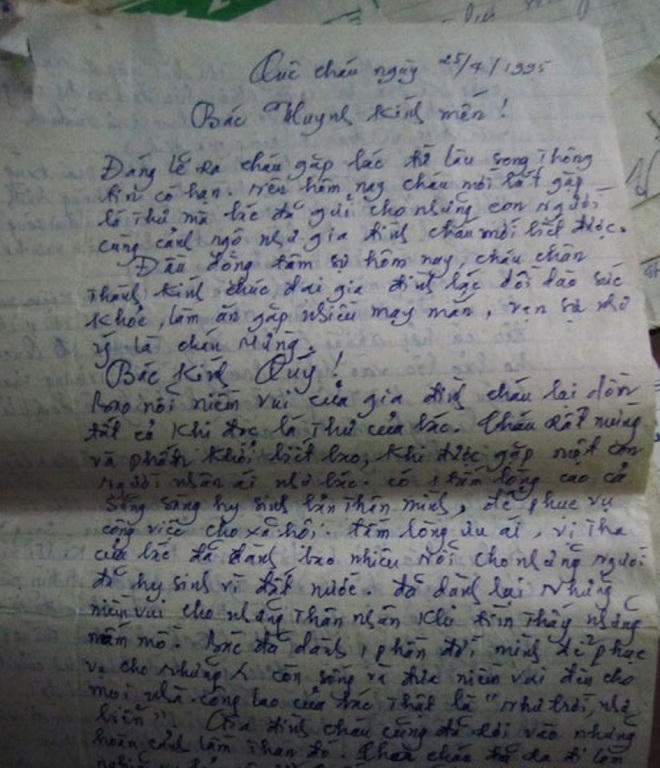 Quê cháu ngày 25/4/1995
Bác Huynh Kính mến !
Đáng lẽ ra cháu gặp bác từ lâu song thông
tin có hạn. nên hôm nay cháu mới bắt gặp
lá thư mà bác đã gửi cho những con người
cùng cảnh ngộ như gia đình cháu mới biết được.
Đầu dòng tâm sự hôm nay, cháu chân
thành kính chúc đại gia đình bác dồi dào sức
khỏe, làm ăn gặp nhiều may mắn, vạn sự như
ý là cháu mừng.
Bác Kính Quý !
Bao nỗi niềm vui của gia đình cháu lại dồn
tất cả khi đọc lá thư của bác. Cháu rất mừng
và phấn khởi biết bao, khi được gặp một con
người nhân ái như bác. có 1 tấm lòng cao cả
sẵn sàng hy sinh bản thân mình, để phục vụ
công việc cho xã hội. tấm lòng ưu ái, vị tha
của bác đã dành bao nhiêu rồi cho những người
đã hy sinh vì đất nước. đã dành lại những
niềm vui cho những thân nhân khi tìm thấy những
nấm mồ. Bác đã dành 1 phần đời mình để phục
vụ cho những còn sống và đưa niềm vui đến cho
mọi nhà. công lao của bác thật là "như trời, như
biển". Gia đình cháu cũng đã rơi vào những
hoàn cảnh lầm than đó. cháu đã ra đi làm